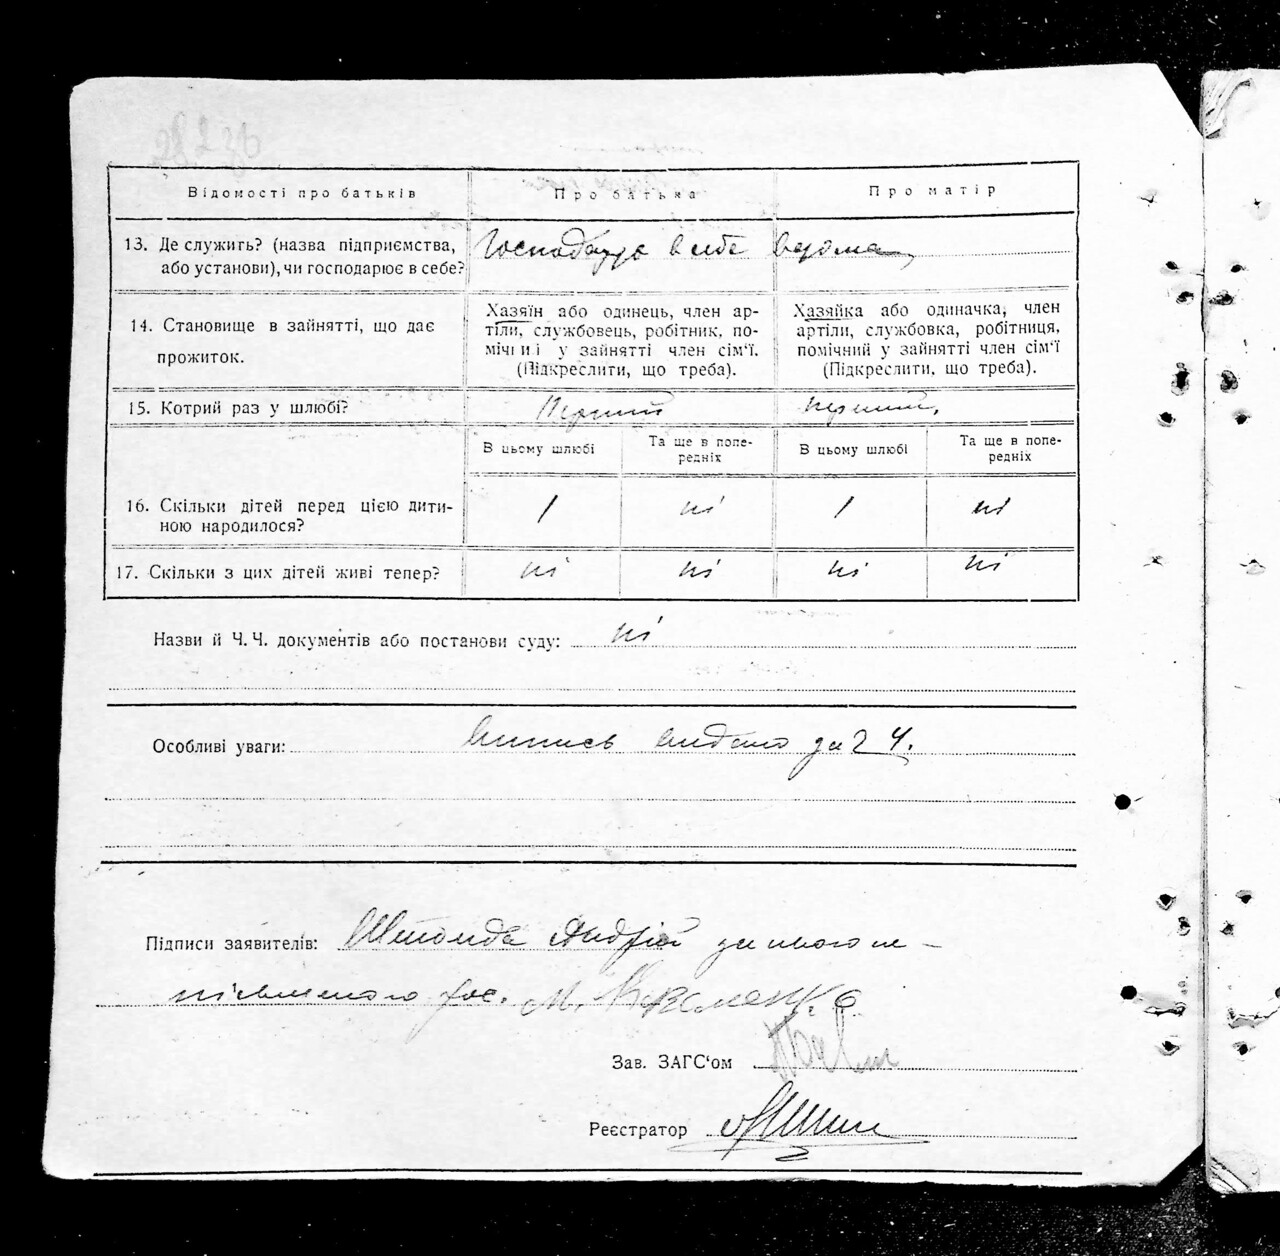 28236
Відомості про батьків Про батька Про матір
13. Де служить? (назва підприємства, або установи), чи господарює в себе? Господарює в себе вдома
14. Становище в зайнятті, що дає прожиток.
Хазяїн або одинець, член ар-
тіли, службовець, робітник, по-
мічний у зайнятті член сім'ї.
(Підкреслити, що треба).
Хазяйка або одиначка, член
артіли, службовка, робітниця,
помічний у зайнятті член сім'ї
(Підкреслити, що треба).
15. Котрий раз у шлюбі? Перший перший
В цьому шлюбі Та ще в попе-
редніх В цьому шлюбі Та ще в попе-
редніх
16. Скільки дітей перед цією дити-
ною народилося? 1 ні 1 ні
17. Скільки з цих дітей живі тепер? ні ні ні ні
Назви й Ч. Ч. документів або постанови суду: ні
Особливі уваги: Випись видано за 2 Ч.
Підписи заявителів: Андрій за нього не-
письменного рос. М. Коваленко
Зав. ЗАГС'ом
Реєстратор